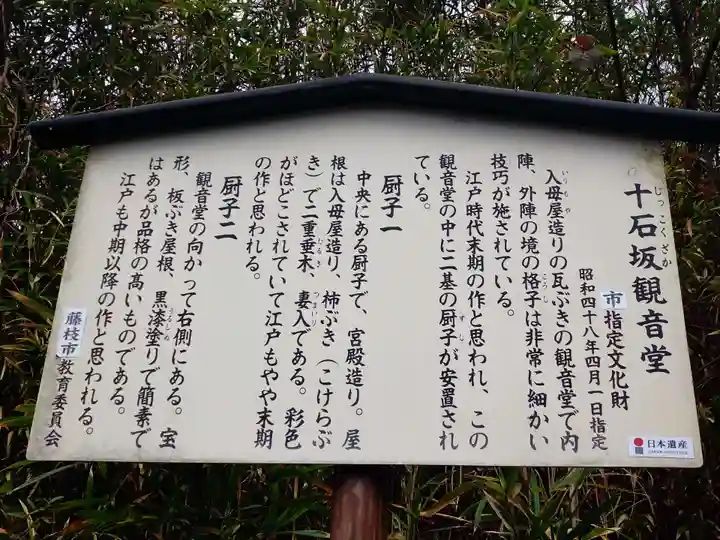 十石坂観音堂
じっこくざか
市指定文化財
昭和四十八年四月一日指定
入母屋造りの瓦ぶきの観音堂で内
いりもや
陣、外陣の境の格子は非常に細かい
こうし
技巧が施されている。
江戸時代末期の作と思われ、この
観音堂の中に二基の厨子が安置され
ずし
ている。
厨子一
中央にある厨子で、宮殿造り。屋
根は入母屋造り、柿ぶき（こけらぶ
き）で二重垂木、妻入である。彩色
たるき
つまいり
がほどこされていて江戸もやや末期
の作と思われる。
厨子二
観音堂の向かって右側にある。宝
形、板ぶき屋根、黒漆塗りで簡素で
はあるが品格の高いものである。
江戸も中期以降の作と思われる。
藤枝市教育委員会
日本遺産
JAPAN HERITAGE